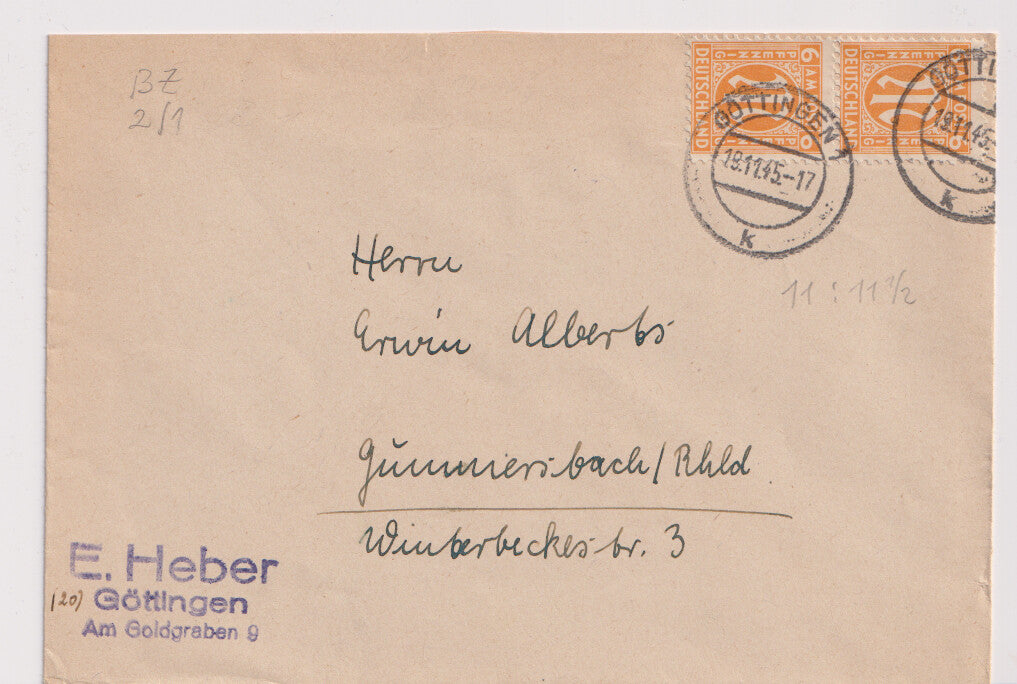 BZ
2/1
6 AM POST
PFENNIG PFENNIG
DEUTSCHLAND
DEUTSCHLAND
PFENNIG
GÖTTINGEN 1
19.11.45.-17
k
GÖTTIN
19.11.45.-
k
11 : 11 1/2
Herrn
Erwin Alberts
Gummersbach/Rhld
Winterbeckestr. 3
E. Heber
(20) Göttingen
Am Goldgraben 9